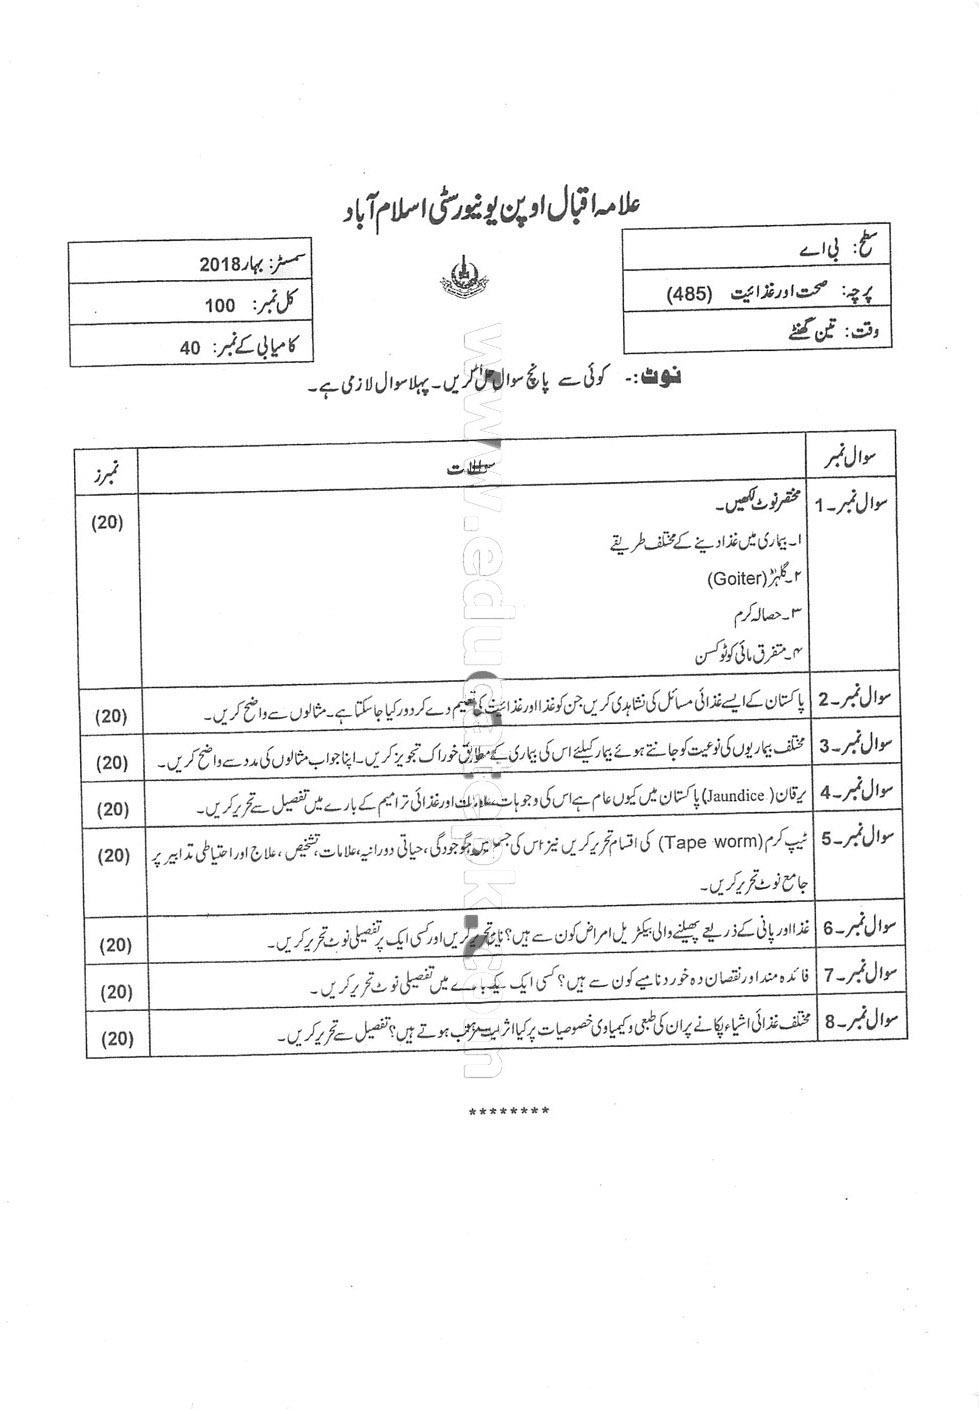 علامہ اقبال اوپن یونیورسٹی اسلام آباد
سطح: بی اے
پرچہ: صحت اور غذائیت (485)
وقت: تین گھنٹے
سمسٹر: بہار 2018
کل نمبر: 100
کامیابی کے نمبر: 40
نوٹ:۔ کوئی سے پانچ سوال حل کریں۔ پہلا سوال لازمی ہے۔
سوال نمبر سوالات نمبرز
سوال نمبر۔1 مختصر نوٹ لکھیں۔ (20)
۱۔ بیماری میں غذا دینے کے مختلف طریقے
۲۔ گلہڑ (Goiter)
۳۔ حصالہ کرم
۴۔ متفرق مائی کوٹوکسن
سوال نمبر۔2 پاکستان کے ایسے غذائی مسائل کی نشاہدی کریں جن کو غذا اور غذائیت کی تعلیم دے کر دور کیا جا سکتا ہے۔ مثالوں سے واضح کریں۔ (20)
سوال نمبر۔3 مختلف بیماریوں کی نوعیت کو جانتے ہوئے بیمار کیلئے اس کی بیماری کے مطابق خوراک تجویز کریں۔ اپنا جواب مثالوں کی مدد سے واضح کریں۔ (20)
سوال نمبر۔4 یرقان (Jaundice) پاکستان میں کیوں عام ہے اس کی وجوہات، علامات اور غذائی ترامیم کے بارے میں تفصیل سے تحریر کریں۔ (20)
سوال نمبر۔5 ٹیپ کرم (Tape worm) کی اقسام تحریر کریں نیز اس کی جسم میں موجودگی، حیاتی دورانیہ، علامات، تشخیص، علاج اور احتیاطی تدابیر پر (20)
جامع نوٹ تحریر کریں۔
سوال نمبر۔6 غذا اور پانی کے ذریعے پھیلنے والی بیکٹریل امراض کون سے ہیں؟ نام تحریر کریں اور کسی ایک پر تفصیلی نوٹ تحریر کریں۔ (20)
سوال نمبر۔7 فائدہ مند اور نقصان دہ خورد نامیے کون سے ہیں؟ کسی ایک کے بارے میں تفصیلی نوٹ تحریر کریں۔ (20)
سوال نمبر۔8 مختلف غذائی اشیاء پکانے پر ان کی طبعی و کیمیاوی خصوصیات پر کیا اثرات مرتب ہوتے ہیں؟ تفصیل سے تحریر کریں۔ (20)
********